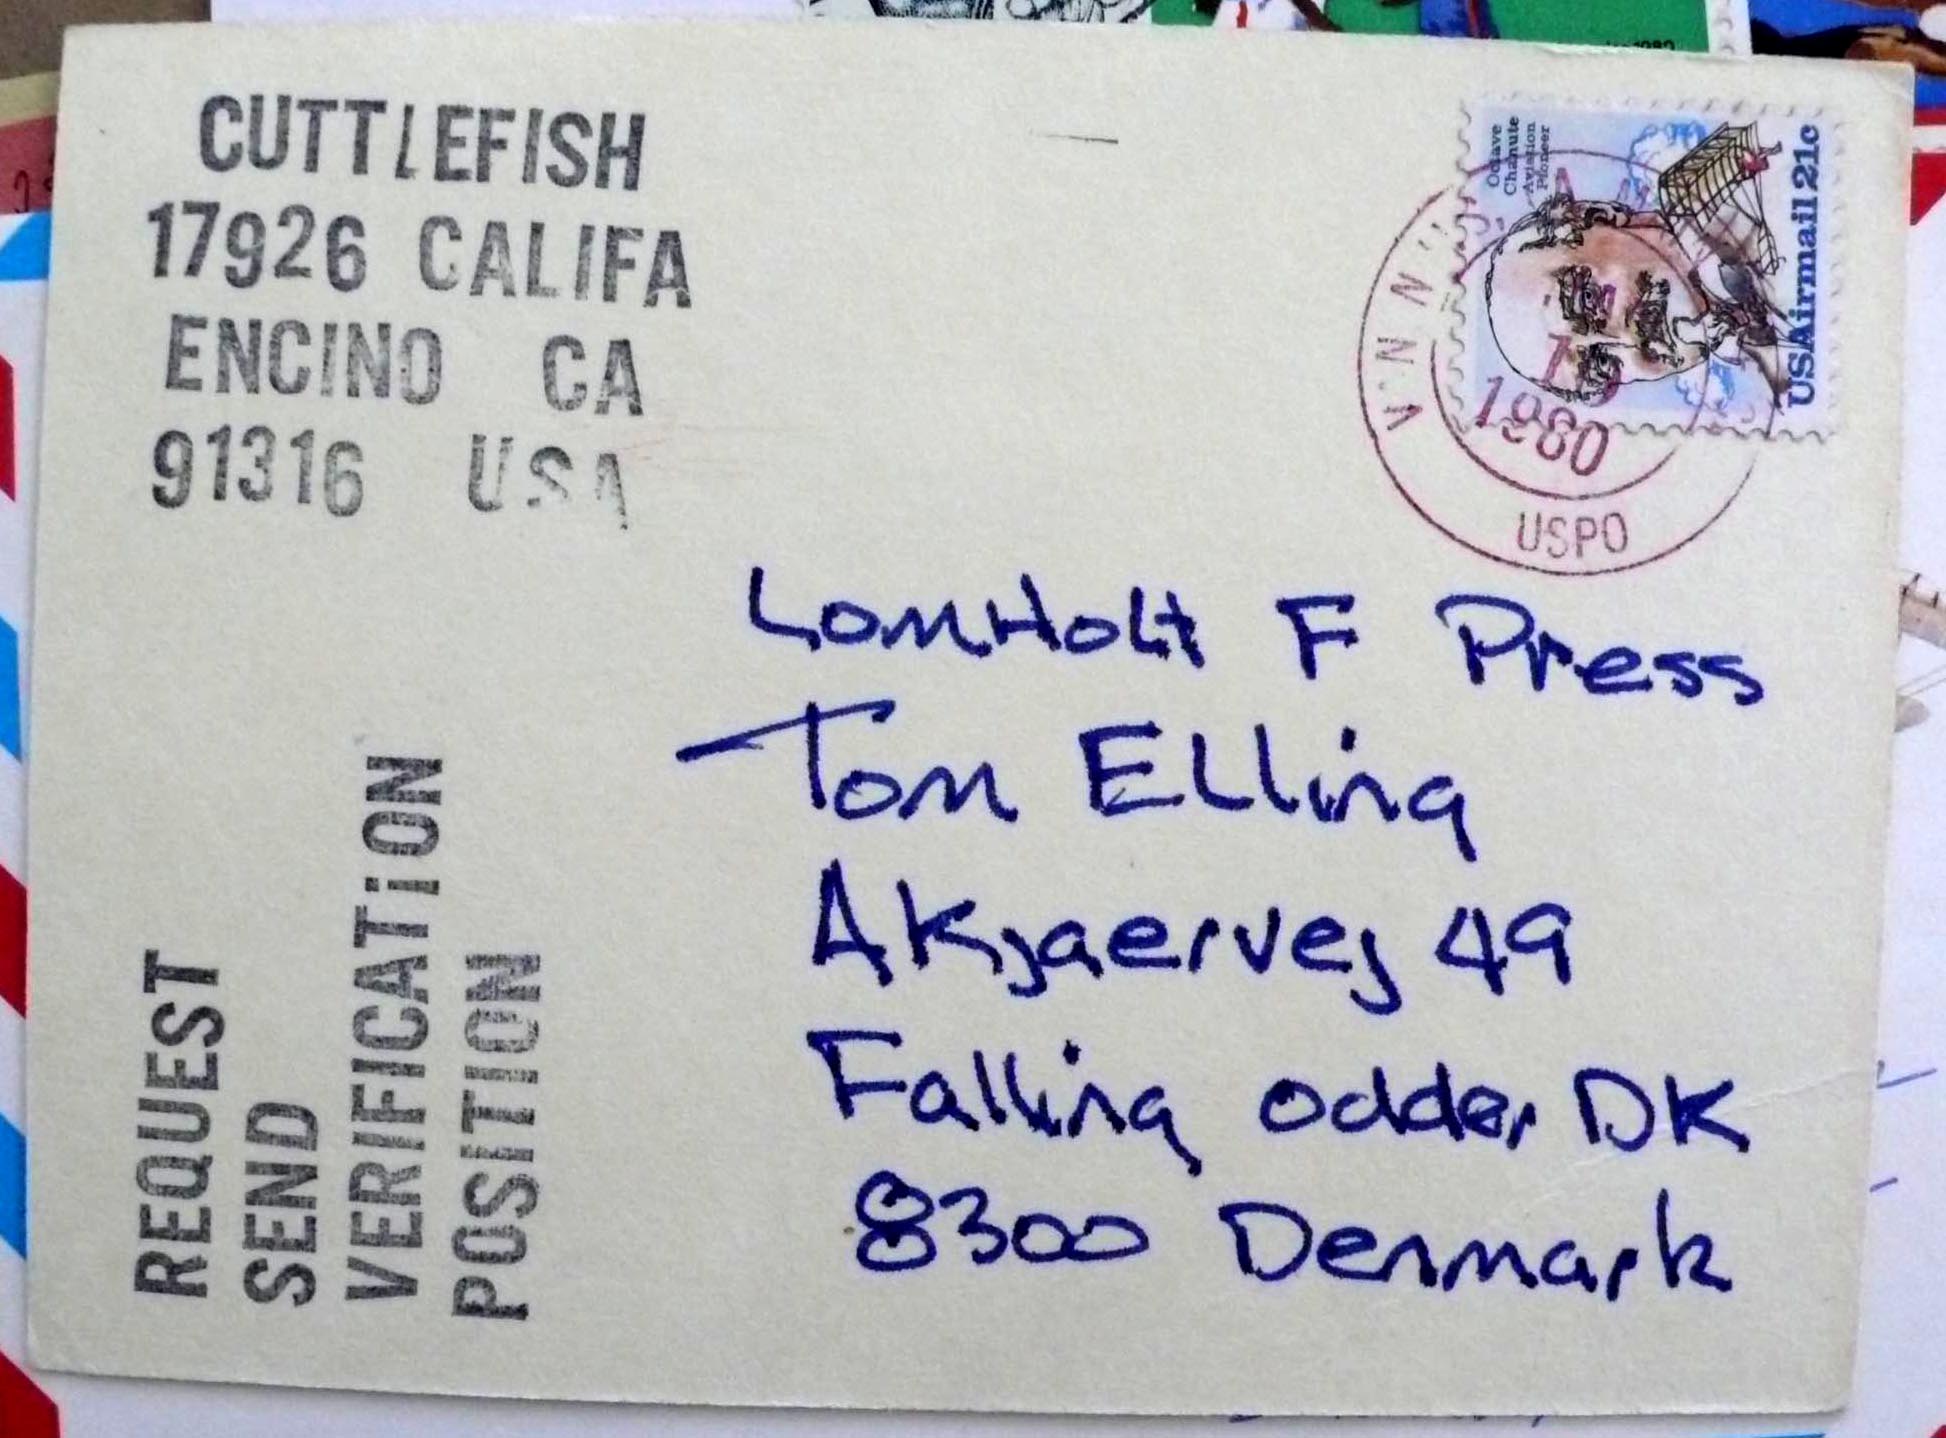 CUTTLEFISH
17926 CALIFA
ENCINO CA
91316 USA
Octave
Chanute
Aviation
Pioneer
USAirmail 21c
1980
USPO
LomHolt F Press
Tom Elling
Akjaervej 49
Falling odder DK
8300 Denmark
REQUEST
SEND
VERIFICATiON
POSITION